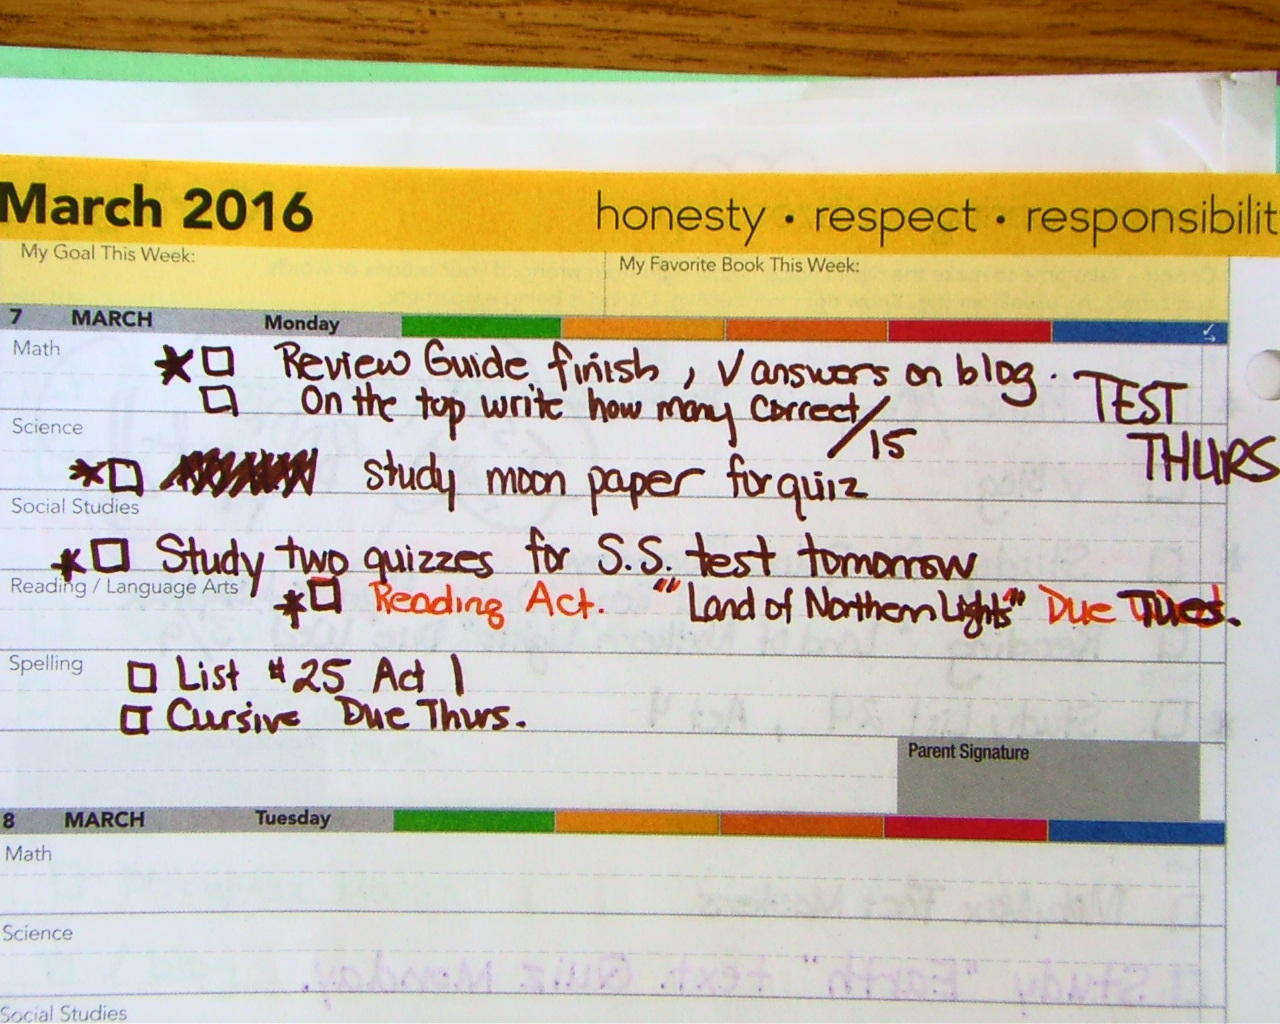 March 2016 honesty • respect • responsibilit
My Goal This Week: My Favorite Book This Week:
7 MARCH Monday
Math
* □ Review Guide finish, √ answers on blog. TEST
□ On the top write how many correct/15 THURS
Science
* □ study moon paper for quiz
Social Studies
* □ Study two quizzes for S.S. test tomorrow
Reading / Language Arts
* □ Reading Act. "Land of Northern Lights" Due Tues.
Spelling
□ List #25 Act 1
□ Cursive Due Thurs.
Parent Signature
8 MARCH Tuesday
Math
Science
Social Studies